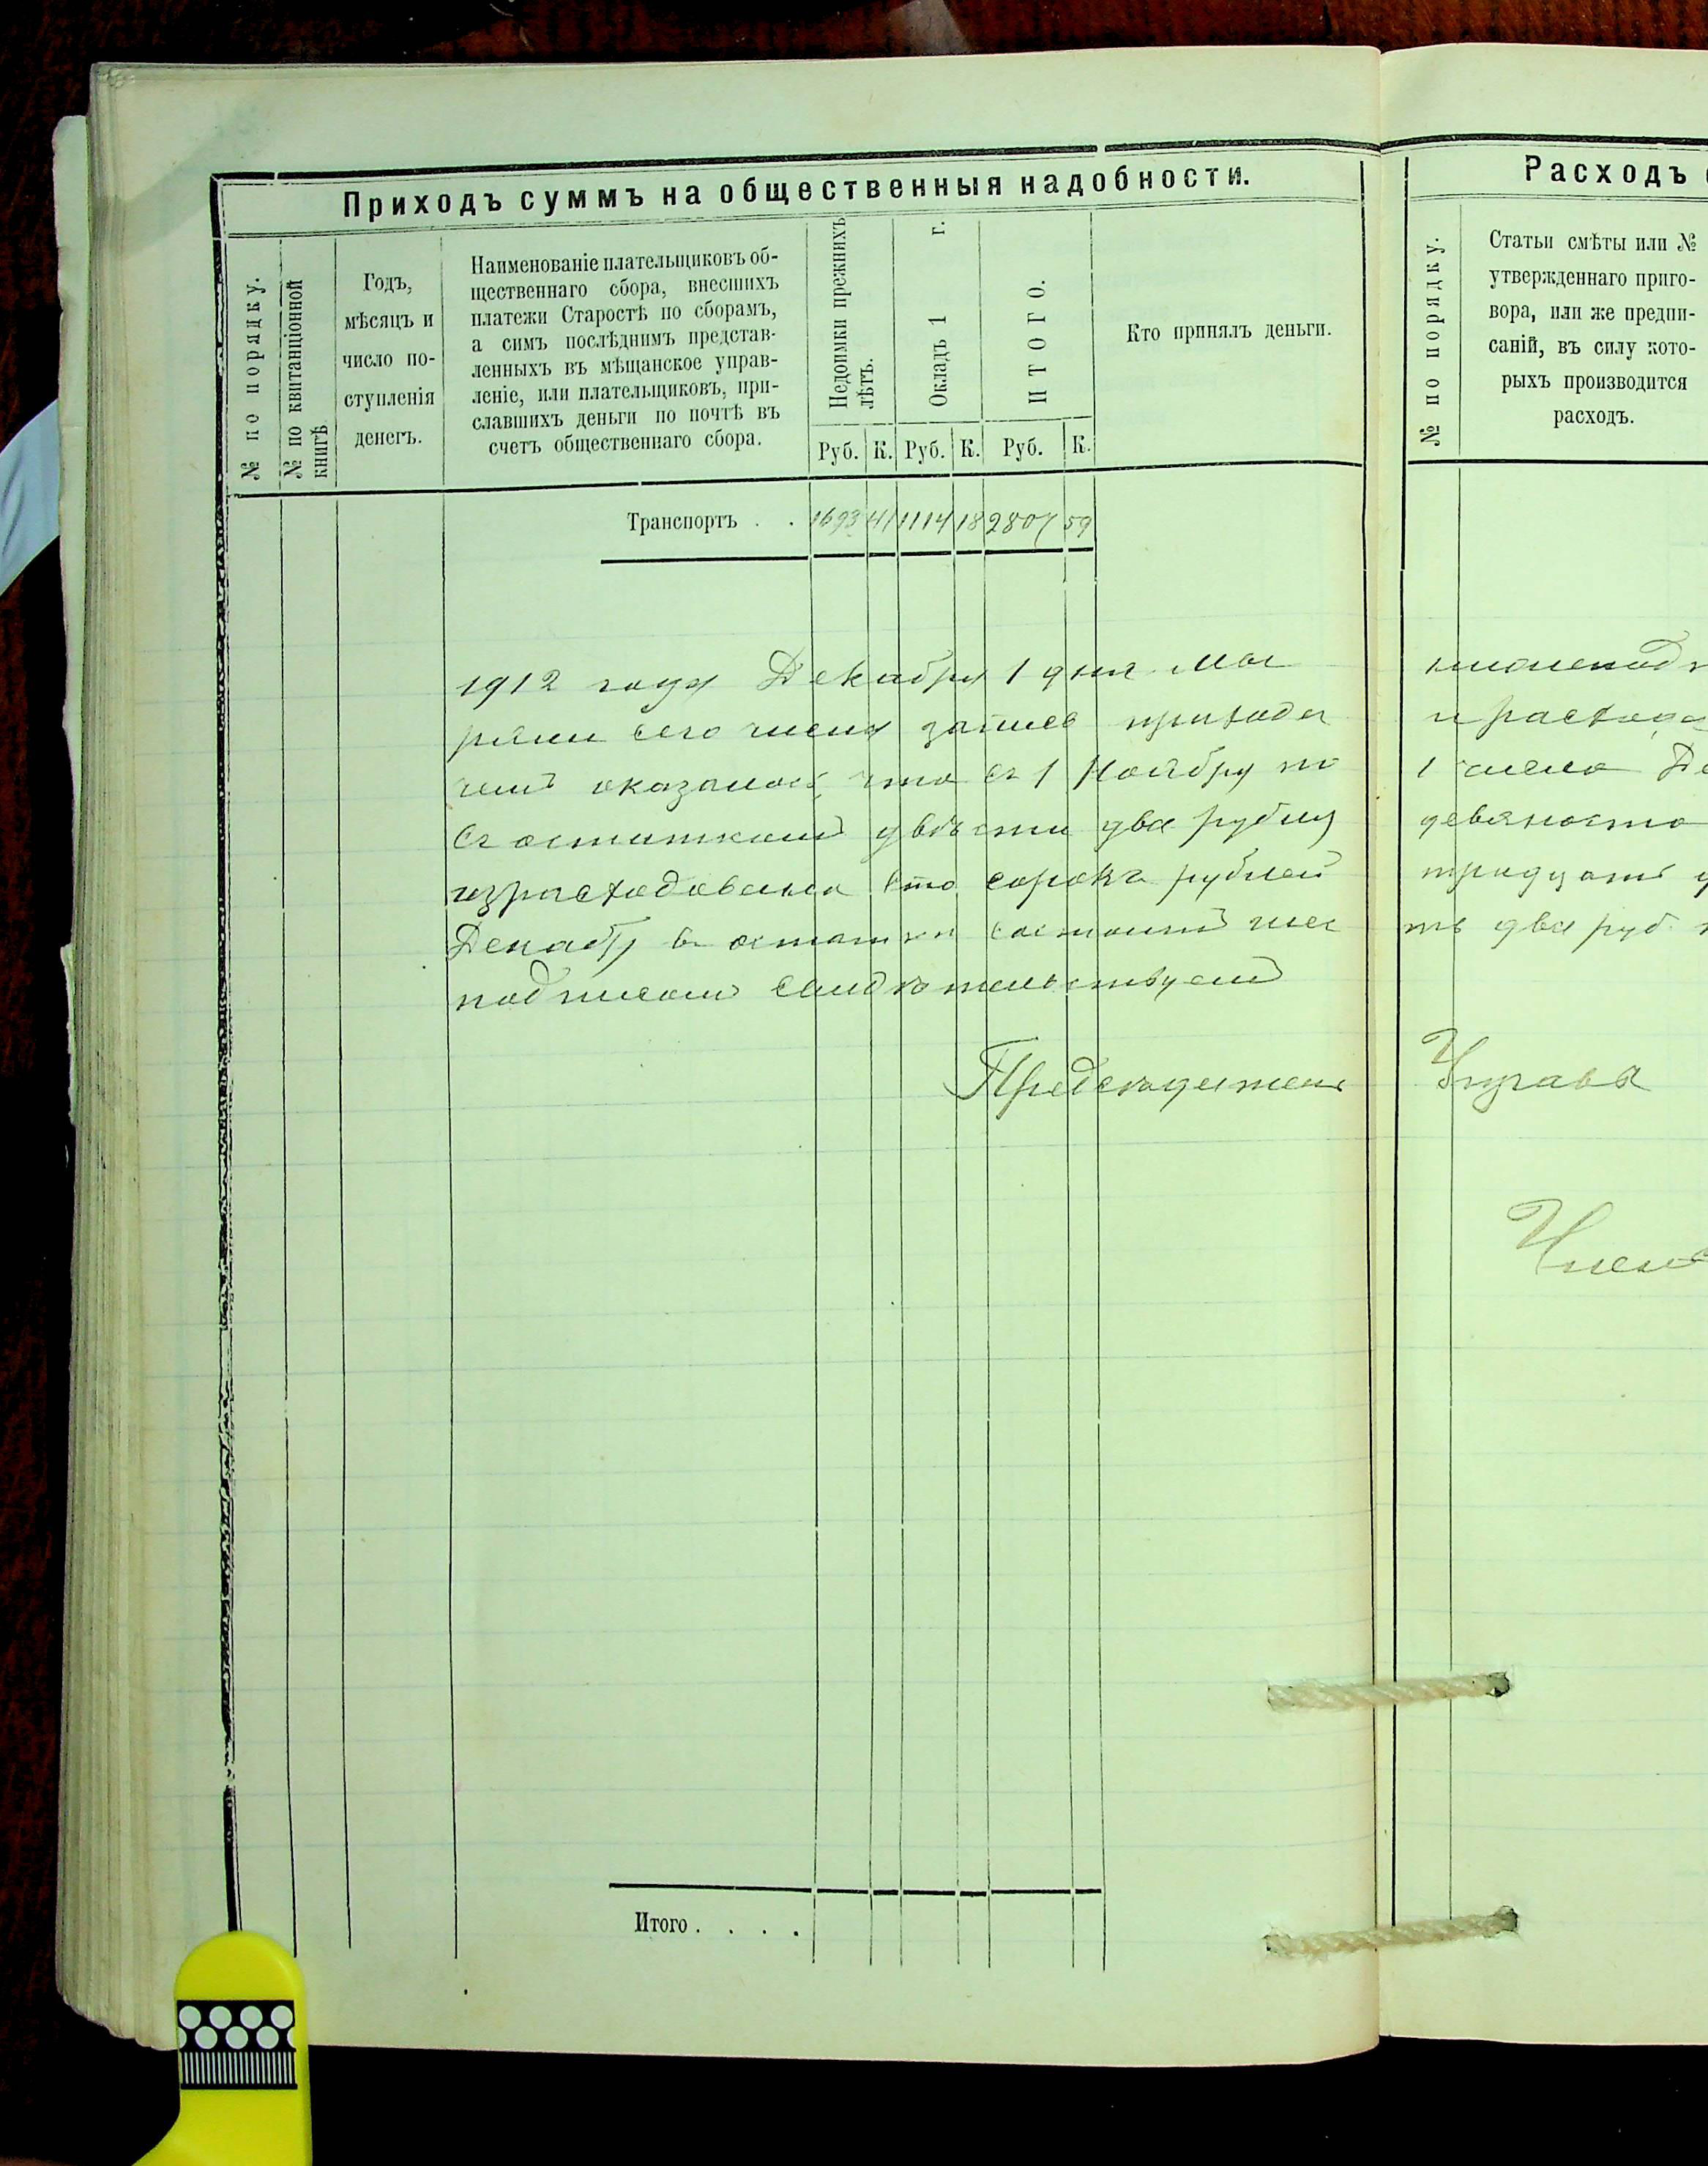 Приходъ суммъ на общественныя надобности.
№ по порядку.
№ по квитанціонной
книгѣ
Годъ,
мѣсяцъ и
число по-
ступленія
денегъ.
Наименованіе плательщиковъ об-
щественнаго сбора, внесшихъ
платежи Старостѣ по сборамъ,
а симъ послѣднимъ представ-
ленныхъ въ мѣщанское управ-
леніе, или плательщиковъ, при-
славшихъ деньги по почтѣ въ
счетъ общественнаго сбора.
Недоимки прежнихъ
лѣтъ.
Окладъ 1 г.
ИТОГО.
Руб. К. Руб. К. Руб. К.
Кто принялъ деньги.
Транспортъ . . 1693 41 1114 18 2807 59
1912 года Декабря 1 дня Мы
ряли сего числа записе прихода
чемъ оказалось, что съ 1 Ноября по
съ остаткомъ двѣсти два рубля
израсходовано сто сорокъ рублей
Декабр въ остатки состоитъ шес
подписомъ свидѣтельствуемъ
Предсѣдатель
Итого . . . .
Расходъ
№ по порядку.
Статьи смѣты или №
утвержденнаго приго-
вора, или же предпи-
саній, въ силу кото-
рыхъ производится
расходъ.
и расхода
1 числа Де
девяносто
тридцать
ть два руб.
Управы
Члены